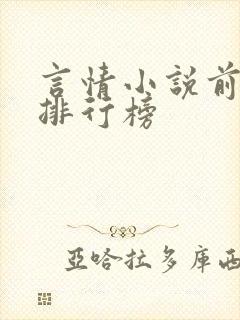 言情小說前
排行榜
亞哈拉多庫西